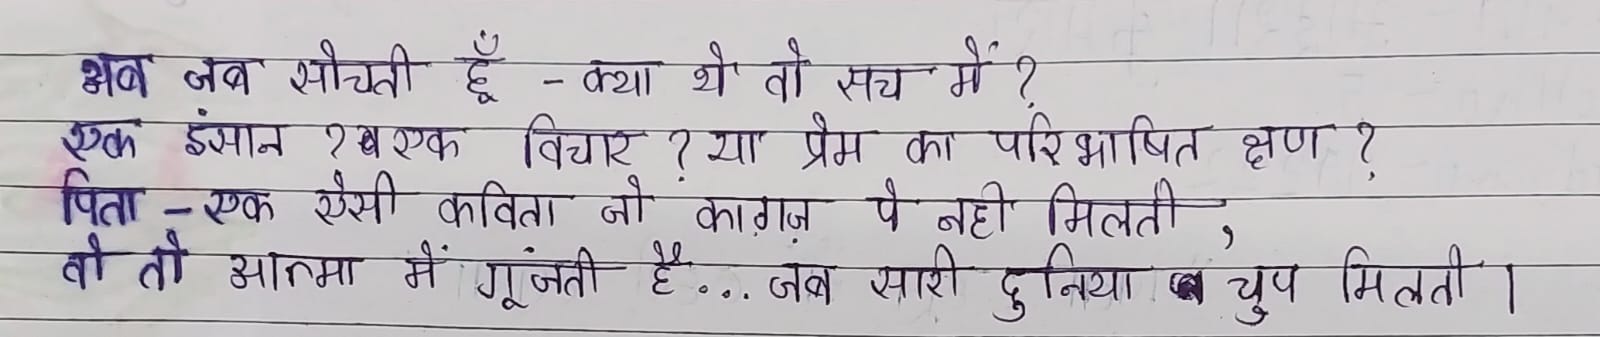 अब जब सोचती हूँ - क्या थे वो सच में ?
एक इंसान ? एक विचार ? या प्रेम का परिभाषित क्षण ?
पिता - एक ऐसी कविता जो काग़ज़ पे नही मिलती ,
वो तो आत्मा में गूंजती है... जब सारी दुनिया चुप मिलती ।